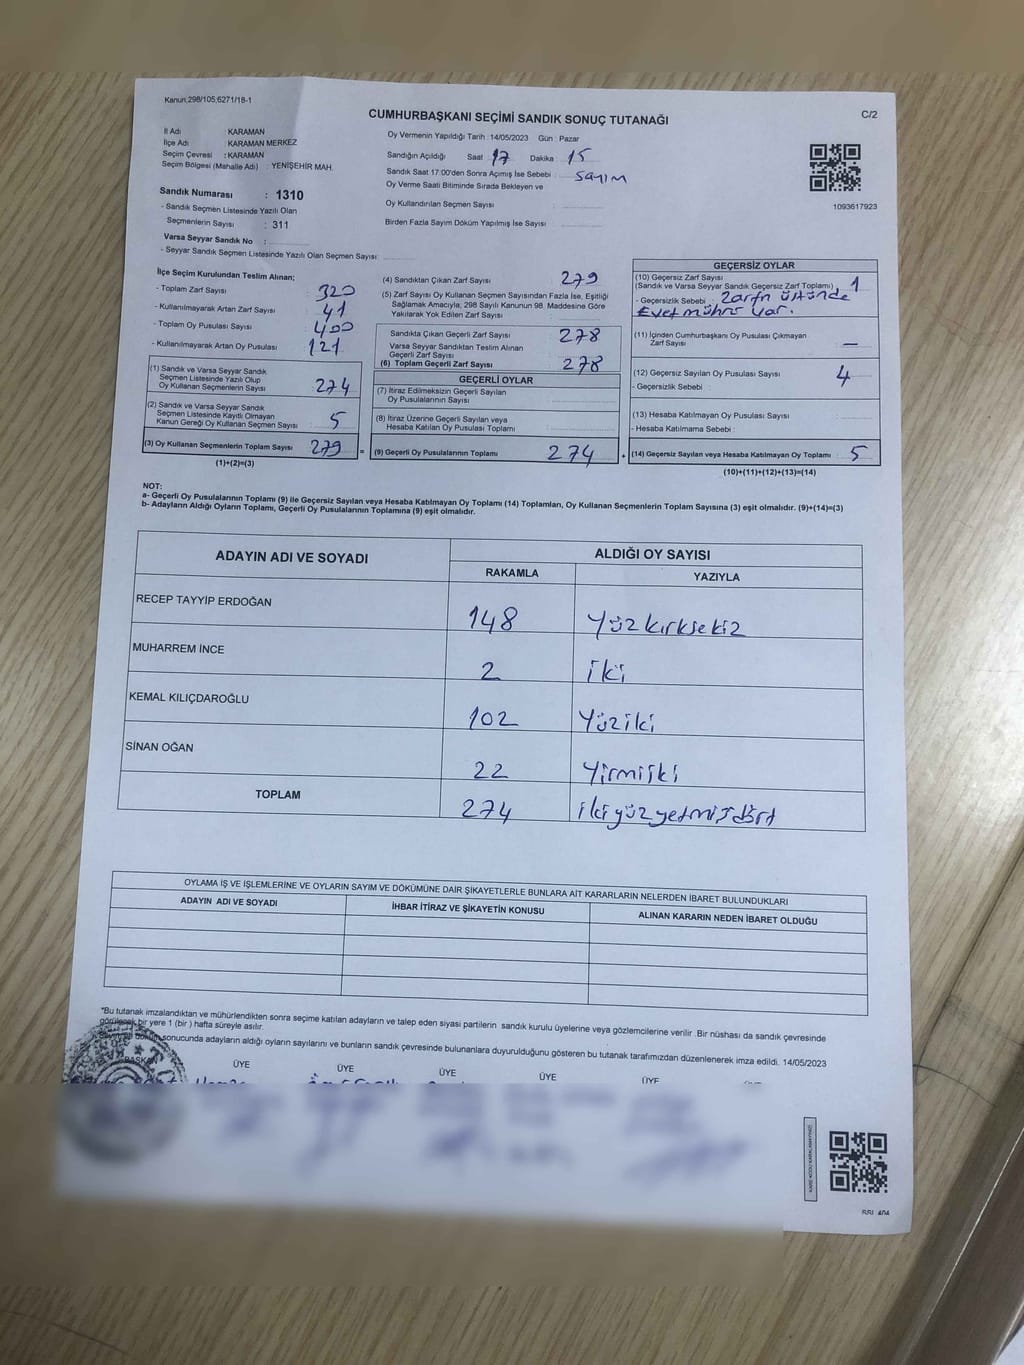 Kanun:298/105,6271/18-1
C/2
CUMHURBAŞKANI SEÇİMİ SANDIK SONUÇ TUTANAĞI
İl Adı : KARAMAN
İlçe Adı : KARAMAN MERKEZ
Seçim Çevresi : KARAMAN
Seçim Bölgesi (Mahalle Adı) : YENİŞEHİR MAH.
Sandık Numarası : 1310
- Sandık Seçmen Listesinde Yazılı Olan
Seçmenlerin Sayısı : 311
Varsa Seyyar Sandık No :
- Seyyar Sandık Seçmen Listesinde Yazılı Olan Seçmen Sayısı :
Oy Vermenin Yapıldığı Tarih : 14/05/2023 Gün : Pazar
Sandığın Açıldığı Saat : 17 Dakika : 15
Sandık Saat 17:00'den Sonra Açımış İse Sebebi : sayım
Oy Verme Saati Bitiminde Sırada Bekleyen ve
Oy Kullandırılan Seçmen Sayısı :
Birden Fazla Sayım Döküm Yapılmış İse Sayısı :
1093617923
İlçe Seçim Kurulundan Teslim Alınan;
- Toplam Zarf Sayısı : 320
- Kullanılmayarak Artan Zarf Sayısı : 41
- Toplam Oy Pusulası Sayısı : 400
- Kullanılmayarak Artan Oy Pusulası : 121
(1) Sandık ve Varsa Seyyar Sandık
Seçmen Listesinde Yazılı Olup
Oy Kullanan Seçmenlerin Sayısı : 274
(2) Sandık ve Varsa Seyyar Sandık
Seçmen Listesinde Kayıtlı Olmayan
Kanun Gereği Oy Kullanan Seçmen Sayısı : 5
(3) Oy Kullanan Seçmenlerin Toplam Sayısı : 279
(1)+(2)=(3)
(4) Sandıktan Çıkan Zarf Sayısı : 279
(5) Zarf Sayısı Oy Kullanan Seçmen Sayısından Fazla İse, Eşitliği
Sağlamak Amacıyla, 298 Sayılı Kanunun 98. Maddesine Göre
Yakılarak Yok Edilen Zarf Sayısı :
Sandıkta Çıkan Geçerli Zarf Sayısı : 278
Varsa Seyyar Sandıktan Teslim Alınan
Geçerli Zarf Sayısı :
(6) Toplam Geçerli Zarf Sayısı : 278
GEÇERLİ OYLAR
(7) İtiraz Edilmeksizin Geçerli Sayılan
Oy Pusulalarının Sayısı :
(8) İtiraz Üzerine Geçerli Sayılan veya
Hesaba Katılan Oy Pusulası Toplamı :
= (9) Geçerli Oy Pusulalarının Toplamı : 274 +
GEÇERSİZ OYLAR
(10) Geçersiz Zarf Sayısı
(Sandık ve Varsa Seyyar Sandık Geçersiz Zarf Toplamı) : 1
- Geçersizlik Sebebi : Zarfın üstünde
Evet mührü var.
(11) İçinden Cumhurbaşkanı Oy Pusulası Çıkmayan
Zarf Sayısı : —
(12) Geçersiz Sayılan Oy Pusulası Sayısı : 4
- Geçersizlik Sebebi :
(13) Hesaba Katılmayan Oy Pusulası Sayısı :
- Hesaba Katılmama Sebebi :
(14) Geçersiz Sayılan veya Hesaba Katılmayan Oy Toplamı : 5
(10)+(11)+(12)+(13)=(14)
NOT:
a- Geçerli Oy Pusulalarının Toplamı (9) ile Geçersiz Sayılan veya Hesaba Katılmayan Oy Toplamı (14) Toplamları, Oy Kullanan Seçmenlerin Toplam Sayısına (3) eşit olmalıdır. (9)+(14)=(3)
b- Adayların Aldığı Oyların Toplamı, Geçerli Oy Pusulalarının Toplamına (9) eşit olmalıdır.
ADAYIN ADI VE SOYADI ALDIĞI OY SAYISI
RAKAMLA YAZIYLA
RECEP TAYYİP ERDOĞAN 148 Yüzkırksekiz
MUHARREM İNCE 2 iki
KEMAL KILIÇDAROĞLU 102 Yüziki
SİNAN OĞAN 22 Yirmiiki
TOPLAM 274 ikiyüzyetmişdört
OYLAMA İŞ VE İŞLEMLERİNE VE OYLARIN SAYIM VE DÖKÜMÜNE DAİR ŞİKAYETLERLE BUNLARA AİT KARARLARIN NELERDEN İBARET BULUNDUKLARI
ADAYIN ADI VE SOYADI İHBAR İTİRAZ VE ŞİKAYETİN KONUSU ALINAN KARARIN NEDEN İBARET OLDUĞU
*Bu tutanak imzalandıktan ve mühürlendikten sonra seçime katılan adayların ve talep eden siyasi partilerin sandık kurulu üyelerine veya gözlemcilerine verilir. Bir nüshası da sandık çevresinde
görülecek bir yere 1 (bir ) hafta süreyle asılır.
sonucunda adayların aldığı oyların sayılarını ve bunların sandık çevresinde bulunanlara duyurulduğunu gösteren bu tutanak tarafımızdan düzenlenerek imza edildi. 14/05/2023
BAŞKAN ÜYE ÜYE ÜYE ÜYE ÜYE